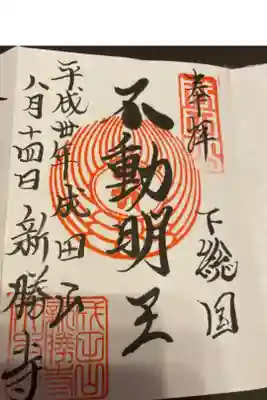 奉拝
下總国
不動明王
平成卅年成田山
八月十四日新勝寺
成田山
新勝寺